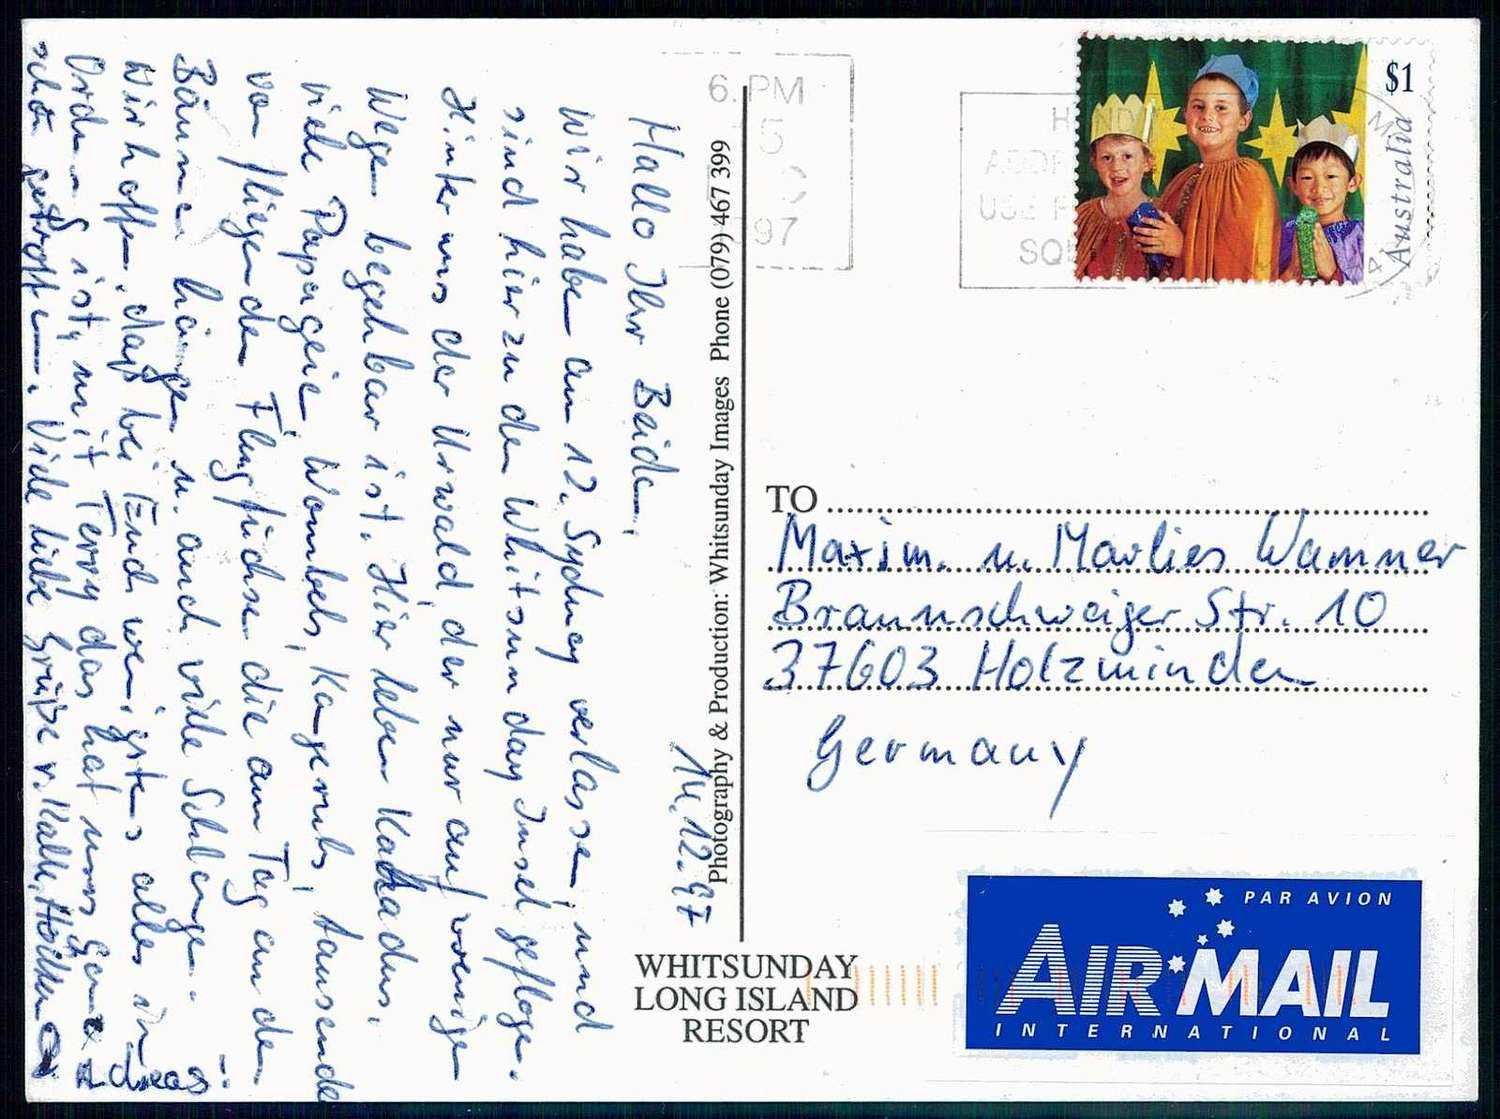 14.12.97
Hallo Ihr Beiden,
wir haben am 12. Sydney verlassen und
sind hier zu den Whitsunday Inseln geflogen.
Hinter uns der Urwald, der nur auf wenigen
Wegen begehbar ist. Hier leben Kakadus,
viele Papageien, Wombels, Kangeruhs, tausende
von fliegenden Flugfüchse die am Tag an den
Bäumen hängen u. auch viele Schlangen.
Wir hoffen, daß bei Euch wenigstens alles in
Ordnung ist, mit Terry das hat uns ganz
schön getroffen. Viele liebe Grüße v. Kalle, Heiken
Andreas
6. PM
5
97
HAND
ADDR
USE P
SQU
$1
Australia
Photography & Production: Whitsunday Images Phone (079) 467 399
WHITSUNDAY
LONG ISLAND
RESORT
TO
Maxim. u. Marlies Wammer
Braunschweiger Str. 10
37603 Holzminden
Germany
PAR AVION
AIR MAIL
INTERNATIONAL